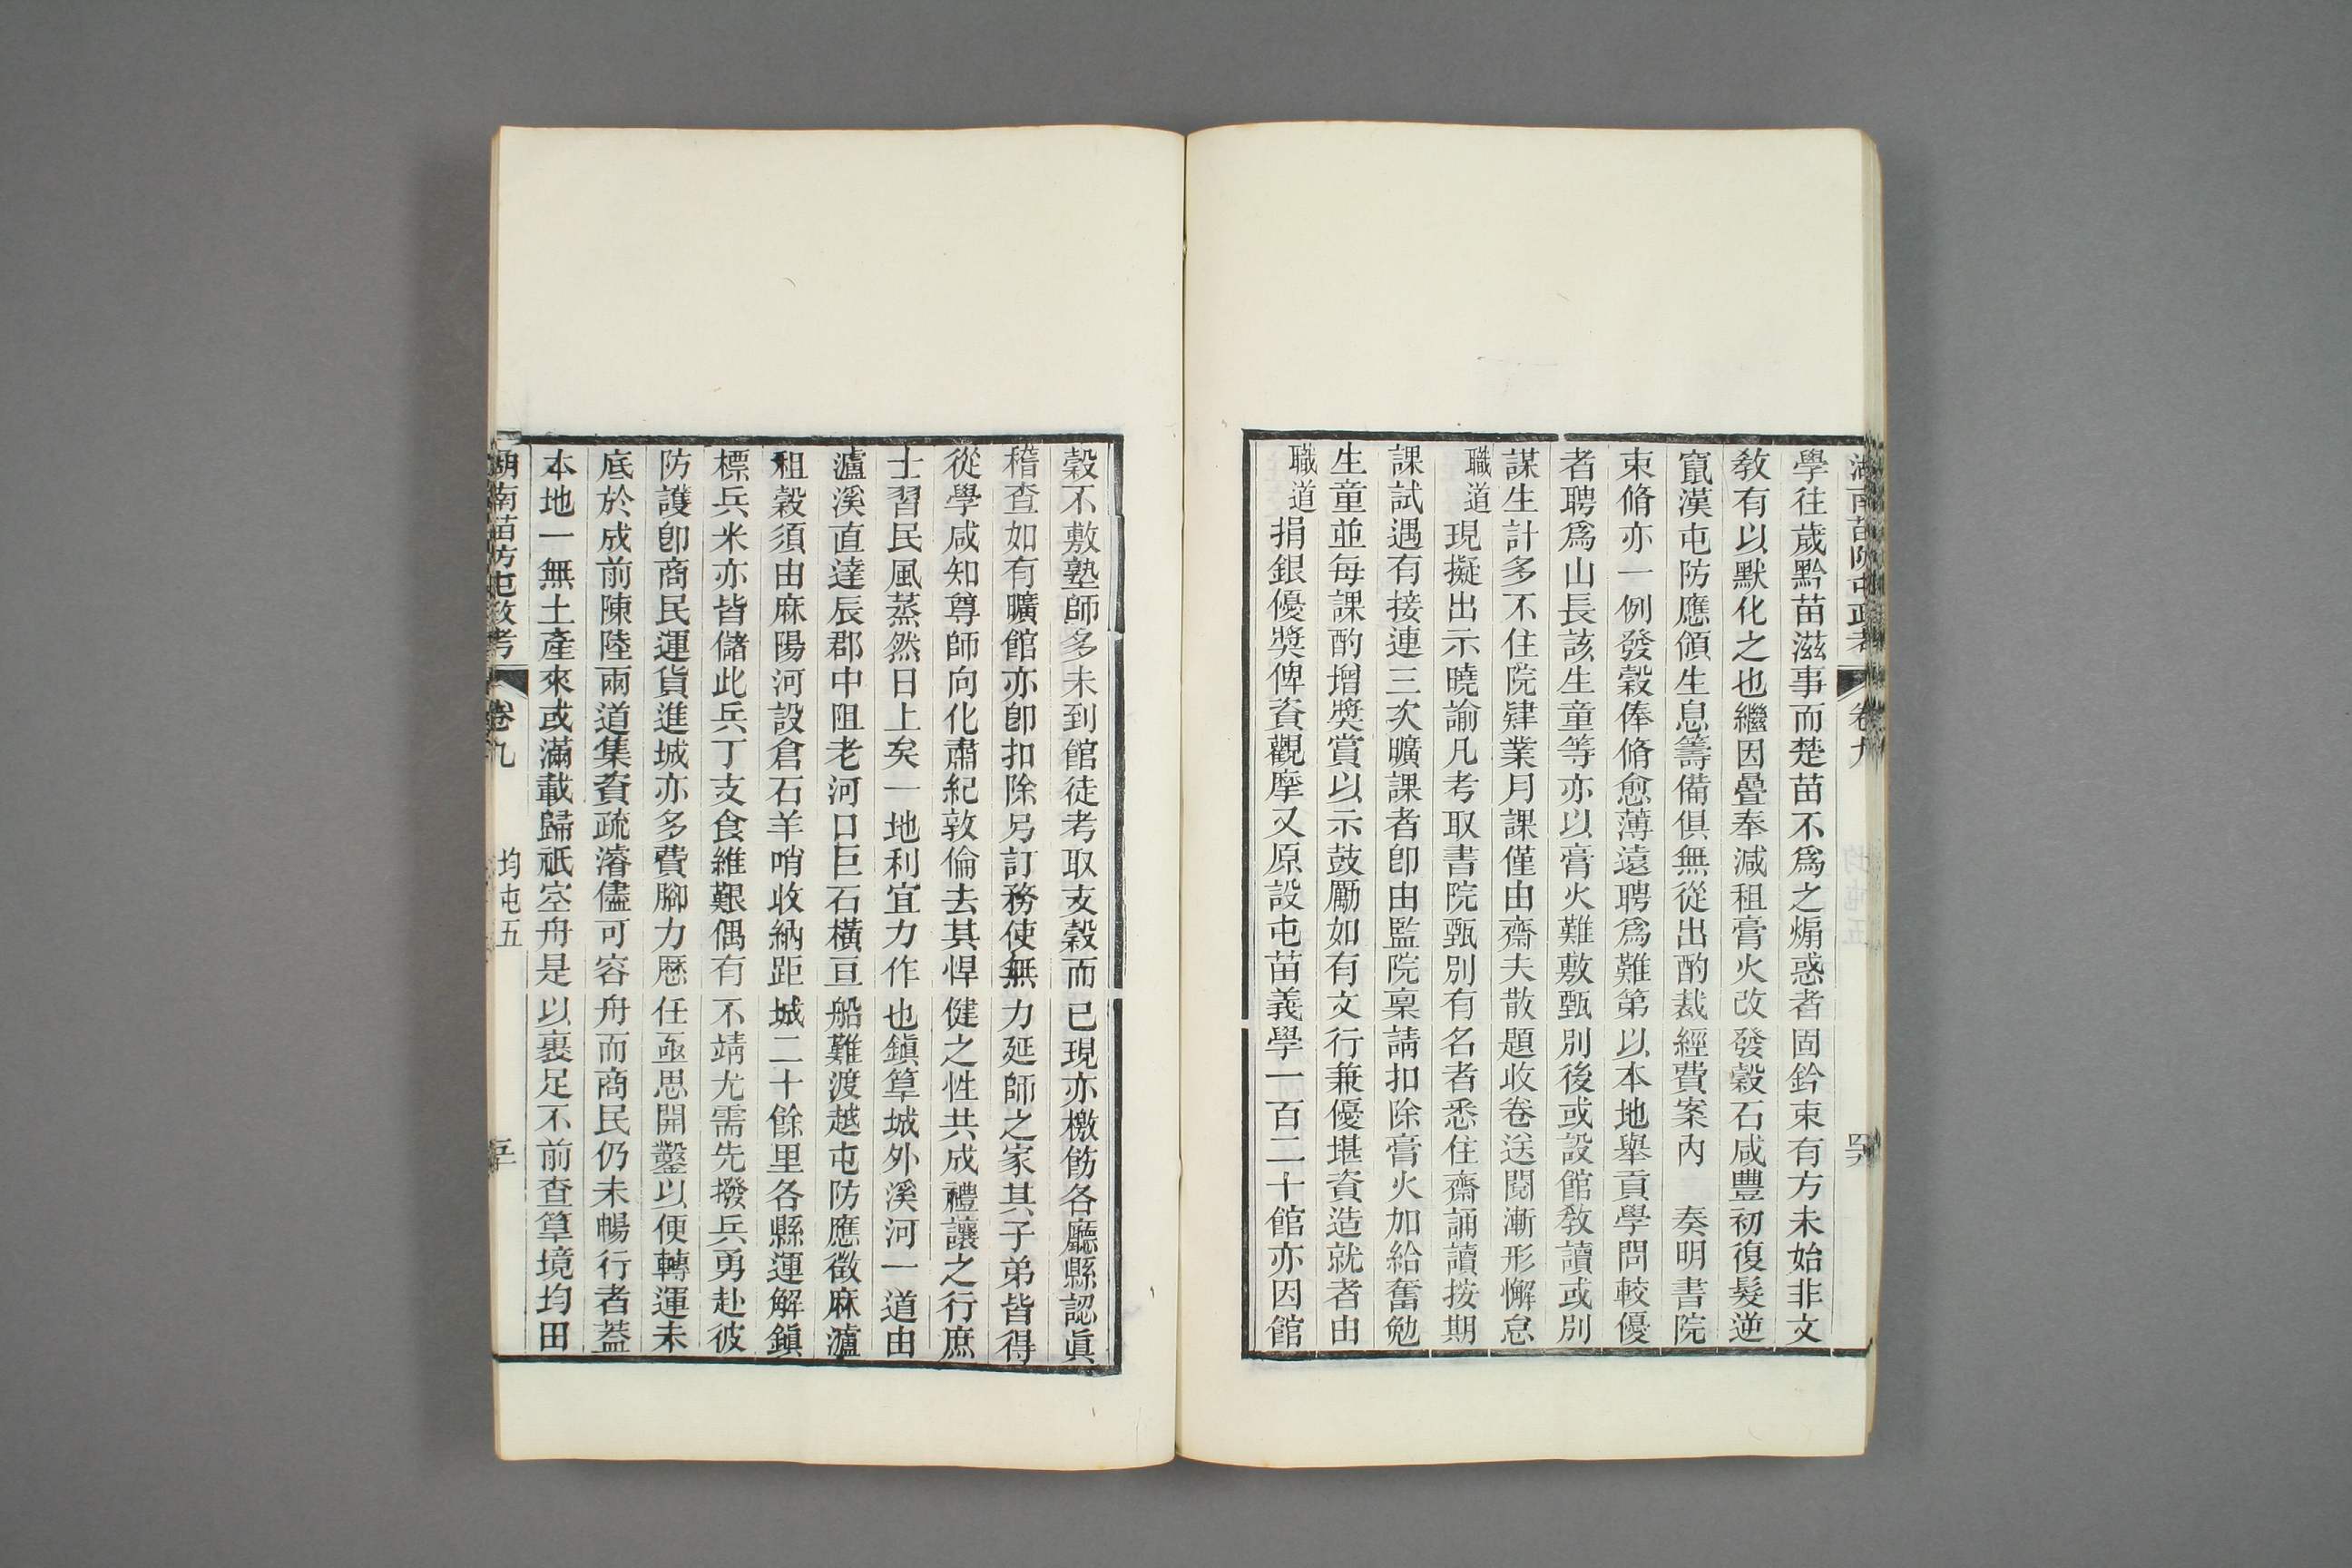 湖南苗防屯政考
卷九
學往歲黔苗滋事而楚苗不爲之煽惑者固鈐束有方未始非文
敎有以默化之也繼因疊奉減租膏火改發穀石咸豐初復髮逆
竄漢屯防應領生息籌備俱無從出酌裁經費案內　奏明書院
束脩亦一例發穀俸脩愈薄遠聘爲難第以本地舉貢學問較優
者聘爲山長該生童等亦以膏火難敷甄別後或設館敎讀或別
謀生計多不住院肄業月課僅由齋夫散題收卷送閱漸形懈怠
職道現擬出示曉諭凡考取書院甄別有名者悉住齋誦讀按期
課試遇有接連三次曠課者卽由監院稟請扣除膏火加給奮勉
生童並每課酌增奬賞以示鼓勵如有文行兼優堪資造就者由
職道捐銀優奬俾資觀摩又原設屯苗義學一百二十館亦因館
穀不敷塾師多未到館徒考取支穀而已現亦檄飭各廳縣認眞
稽查如有曠館亦卽扣除另訂務使無力延師之家其子弟皆得
從學咸知尊師向化肅紀敦倫去其悍健之性共成禮讓之行庶
士習民風蒸然日上矣一地利宜力作也鎭筸城外溪河一道由
瀘溪直達辰郡中阻老河口巨石橫亘船難渡越屯防應徵麻瀘
租穀須由麻陽河設倉石羊哨收納距城二十餘里各縣運解鎭
標兵米亦皆儲此兵丁支食維艱偶有不靖尤需先撥兵勇赴彼
防護卽商民運貨進城亦多費腳力歷任亟思開鑿以便轉運未
底於成前陳陸兩道集資疏濬儘可容舟而商民仍未暢行者葢
本地一無土產來或滿載歸祇空舟是以裹足不前查筸境均田
湖南苗防屯政考
卷九
均屯五